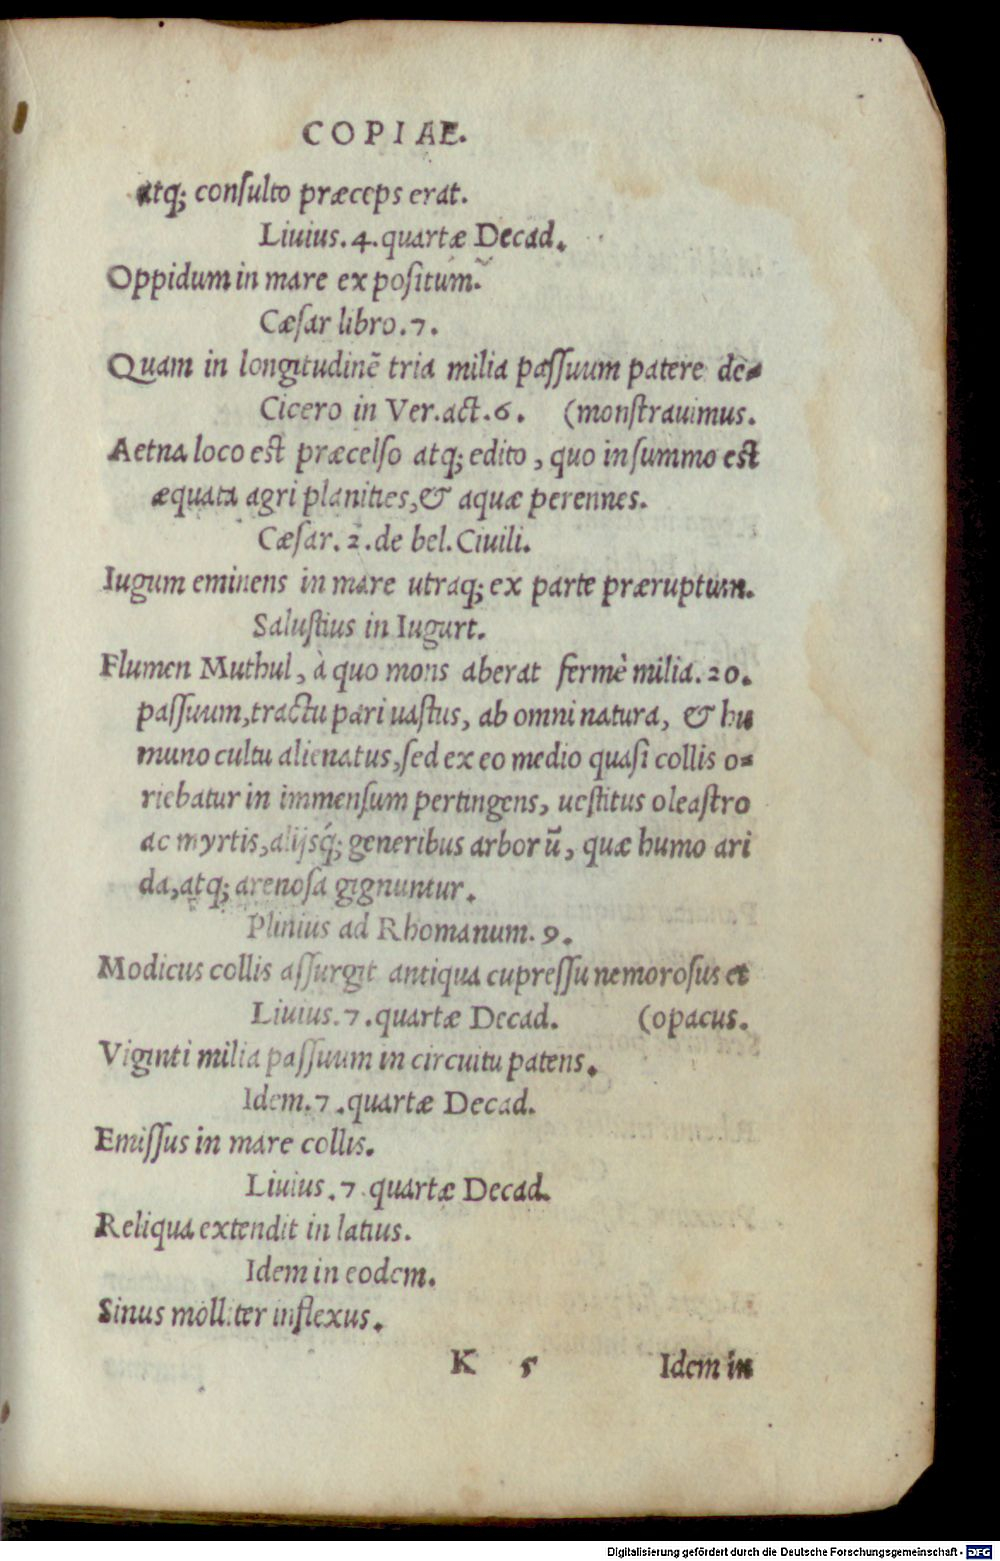 COPIAE.
atq; consulto præceps erat.
Liuius.4.quartæ Decad.
Oppidum in mare expositum.
Cæsar libro.7.
Quam in longitudinẽ tria milia paſſuum patere de-
Cicero in Ver.act.6. (monſtrauimus.
Aetna loco eſt præcelſo atq; edito, quo in ſummo eſt
æquata agri planities,& aquæ perennes.
Cæſar.2.de bel.Ciuili.
Iugum eminens in mare utraq; ex parte præruptum.
Saluſtius in Iugurt.
Flumen Muthul, à quo mons aberat fermè milia.20.
paſſuum,tractu pari uaſtus, ab omni natura, & hu
muno cultu alienatus,ſed ex eo medio quaſi collis o-
riebatur in immenſum pertingens, ueſtitus oleaſtro
ac myrtis,alijsq́; generibus arborũ, quæ humo ari
da,atq; arenoſa gignuntur.
Plinius ad Rhomanum.9.
Modicus collis aſſurgit antiqua cupreſſu nemoroſus et
Liuius.7.quartæ Decad. (opacus.
Viginti milia paſſuum in circuitu patens.
Idem.7.quartæ Decad.
Emiſſus in mare collis.
Liuius.7 quartæ Decad.
Reliqua extendit in latius.
Idem in eodem.
Sinus molliter inflexus.
K 5 Idem in
Digitalisierung gefördert durch die Deutsche Forschungsgemeinschaft - DFG